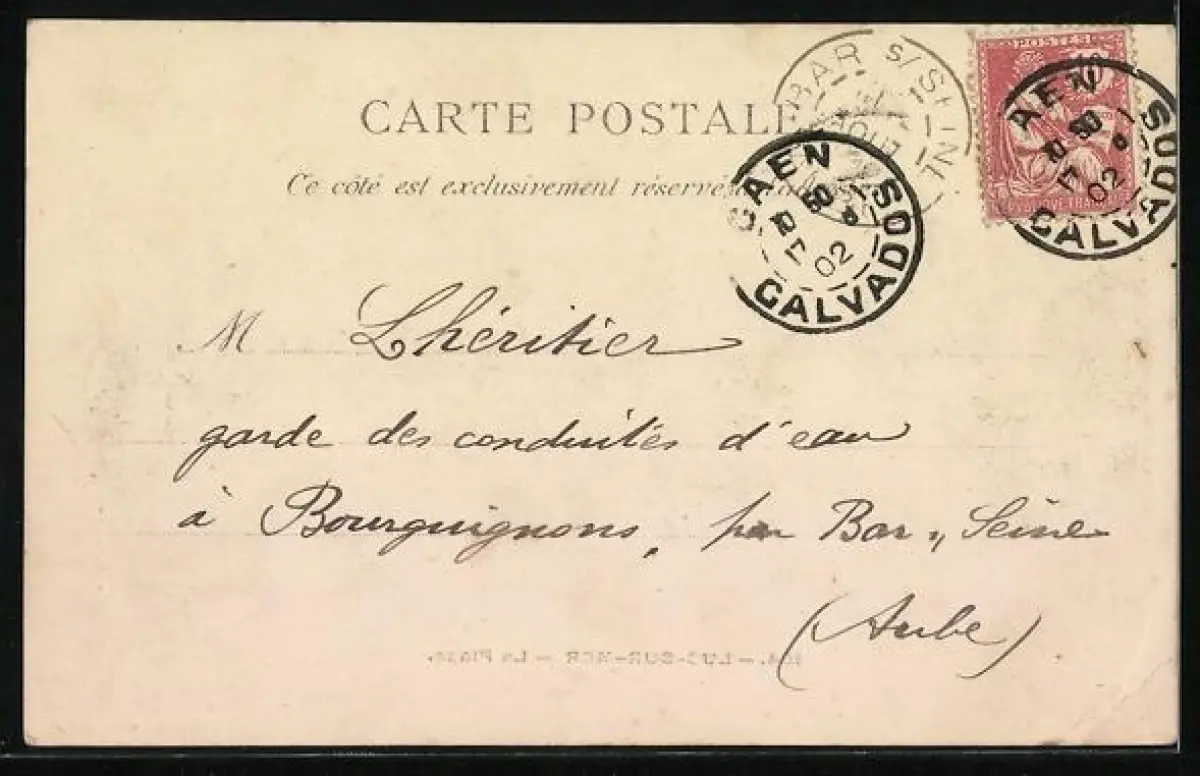 CARTE POSTALE
Ce côté est exclusivement réservé
BAR S/SEINE
POSTES
10
CAEN
CALVADOS
02
CAEN
CALVADOS
02
M Lhéritier
garde des conduites d'eau
à Bourguignons, par Bar s, Seine
(Aube)
LUC-SUR-MER - La Plage.